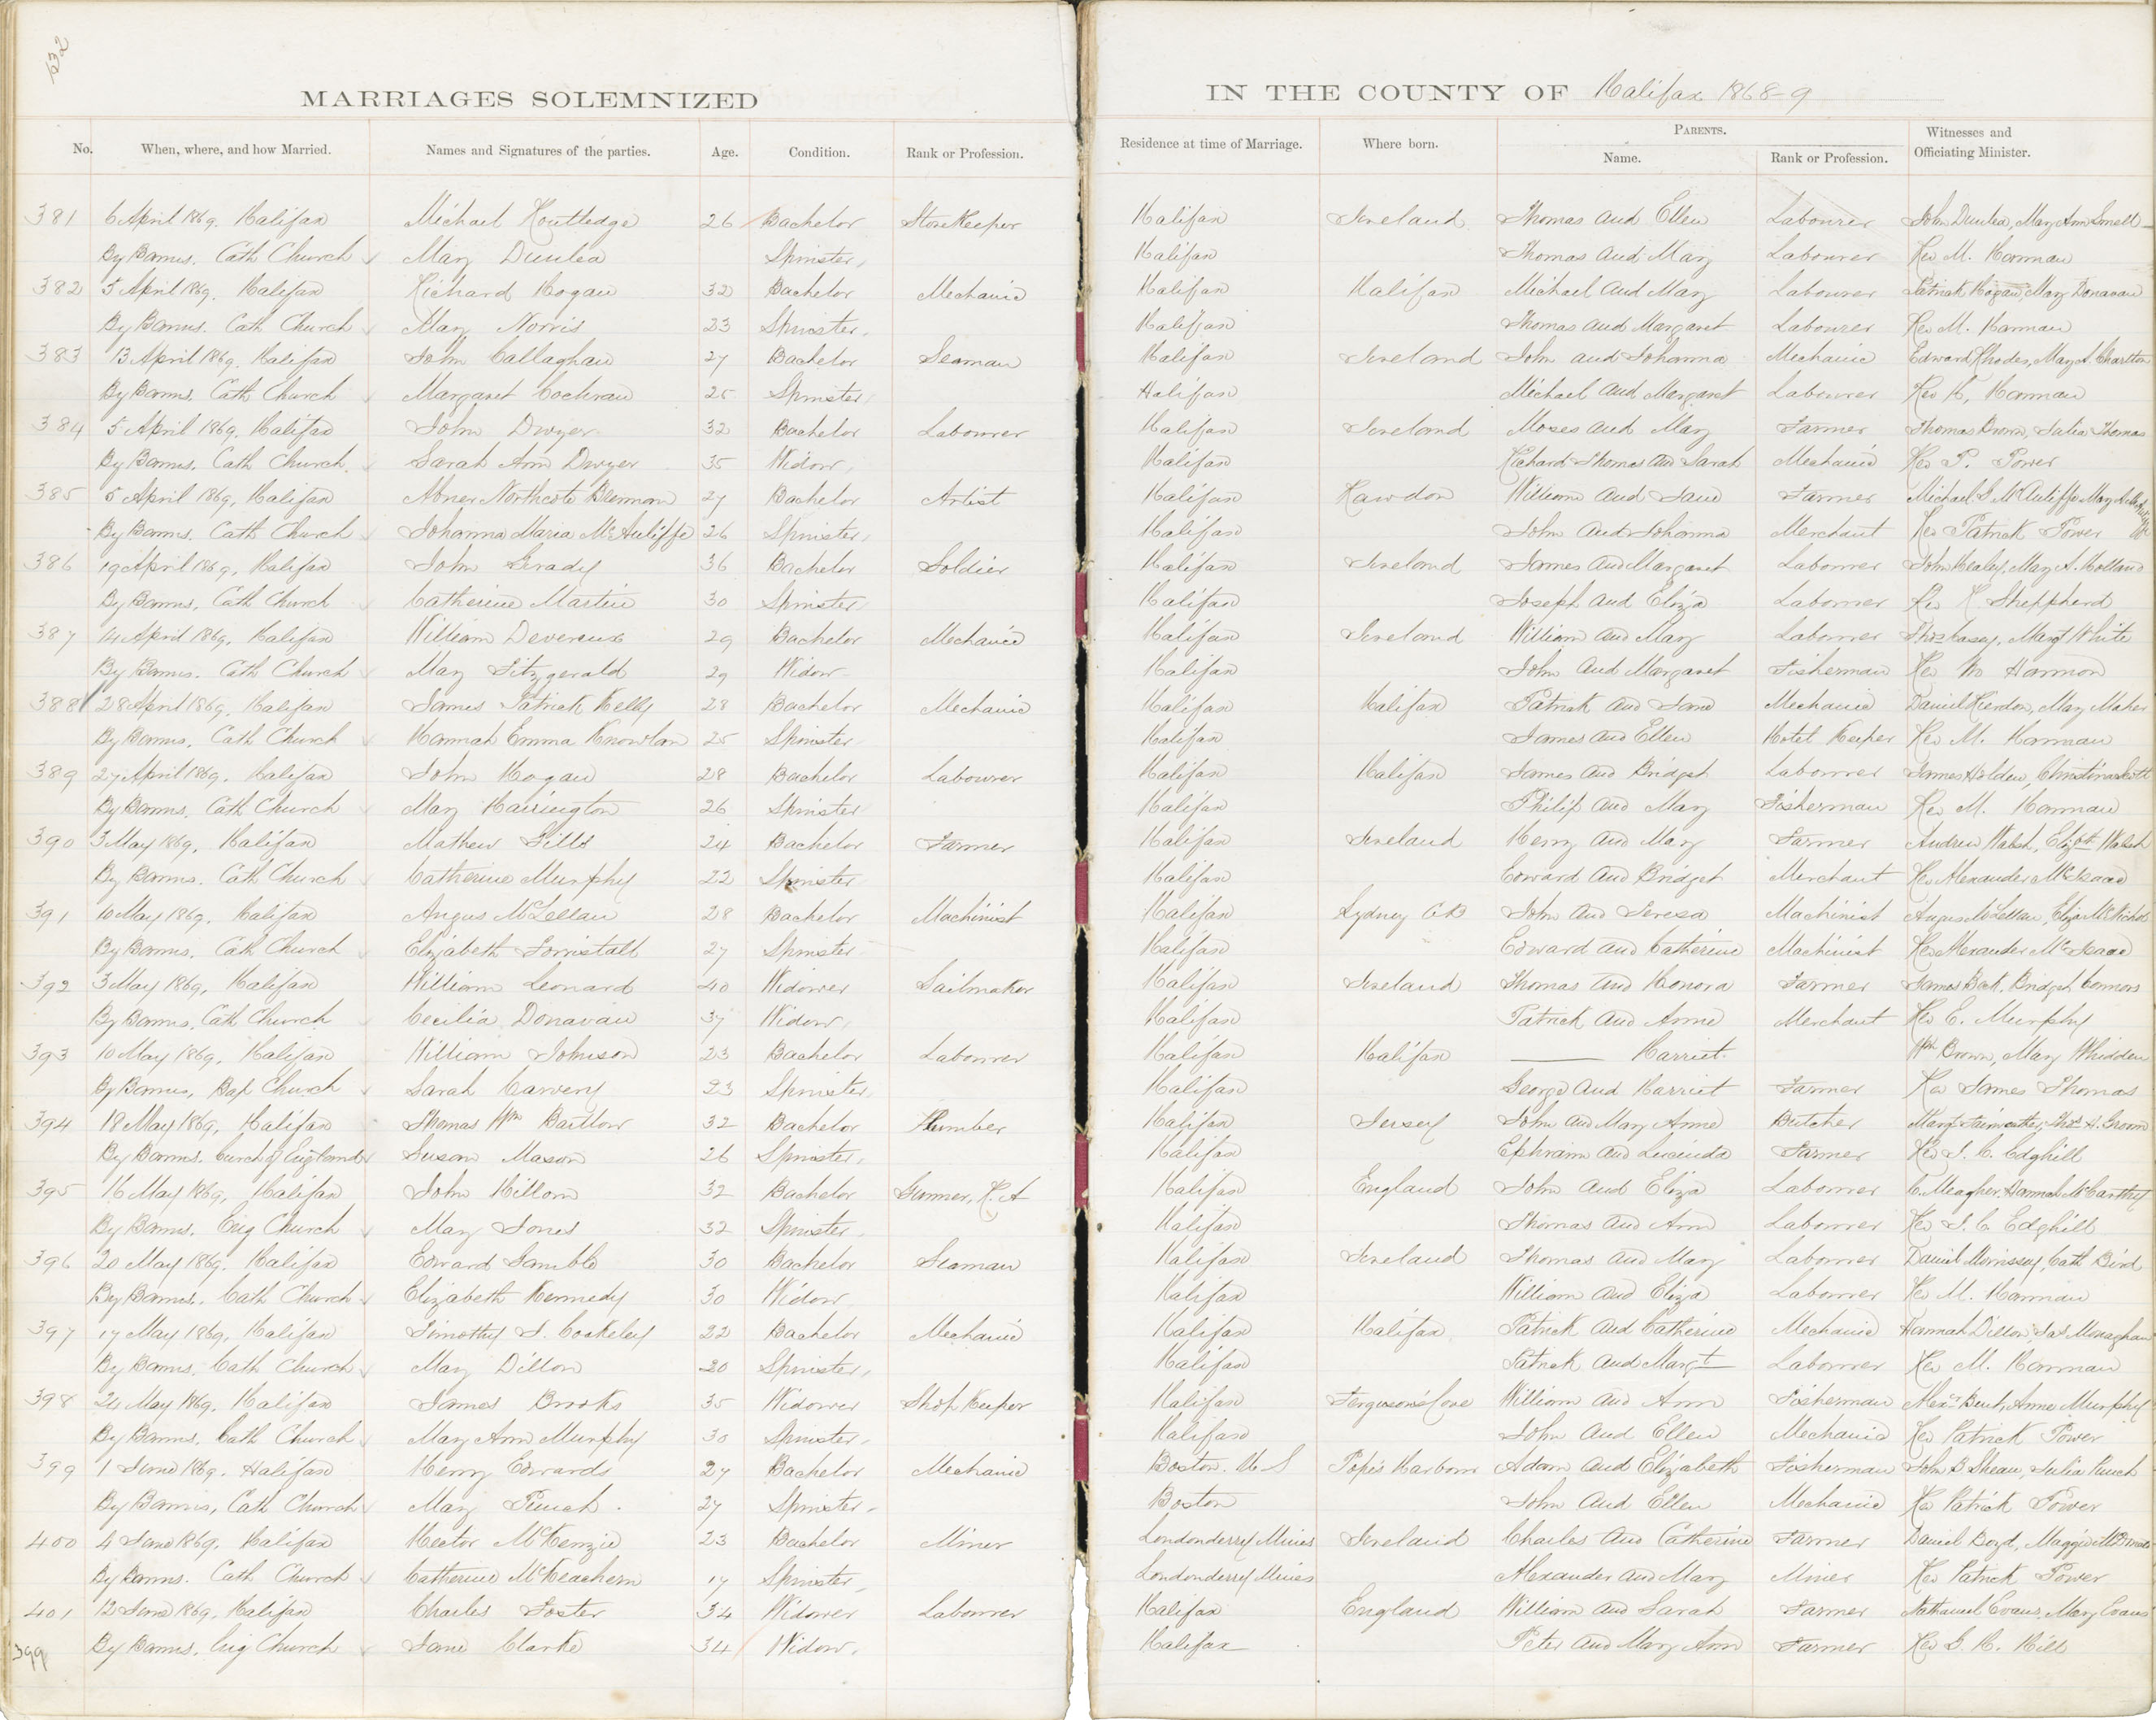 132
MARRIAGES SOLEMNIZED IN THE COUNTY OF Halifax 1868-9
No. When, where, and how Married. Names and Signatures of the parties. Age. Condition. Rank or Profession. Residence at time of Marriage. Where born. PARENTS. Name. Rank or Profession. Witnesses and Officiating Minister.
381 6 April 1869. Halifax Michael Routledge 26 Bachelor StoreKeeper Halifax Ireland Thomas and Ellen Labourer John Dunlea, Mary Ann
By Banns. Cath Church Mary Dunlea Spinster Halifax Thomas and Mary Labourer Rev M. Hannan
382 5 April 1869. Halifax Richard Hogan 32 Bachelor Mechanic Halifax Halifax Michael and Mary Labourer Patrick Hogan, Mary Donavan
By Banns. Cath Church Mary Norris 23 Spinster Halifax Thomas and Margaret Labourer Rev M. Hannan
383 13 April 1869. Halifax John Callaghan 27 Bachelor Seaman Halifax Ireland John and Johanna Mechanic Edward Rhodes, Mary A. Charlton
By Banns. Cath Church Margaret Cochran 25 Spinster Halifax Michael and Margaret Labourer Rev Hannan
384 5 April 1869. Halifax John Dwyer 32 Bachelor Labourer Halifax Ireland Moses and Mary Farmer Thomas Brown, Julia Thomas
By Banns. Cath Church Sarah Ann Dwyer 35 Widow Halifax Richard Thomas and Sarah Mechanic Rev P. Power
385 5 April 1869, Halifax Abner Northcote Brennan 27 Bachelor Artist Halifax Rawdon William and Jane Farmer Michael S McAuliffe Mary
By Banns. Cath Church Johanna Maria McAuliffe 26 Spinster Halifax John and Johanna Merchant Rev Patrick Power
386 19 April 1869, Halifax John Grady 36 Bachelor Soldier Halifax Ireland James and Margaret Labourer John Healey, Mary A. Holland
By Banns, Cath Church Catherine Martin 30 Spinster Halifax Joseph and Eliza Labourer Rev Sheppherd
387 April 1869, Halifax William Devereux 29 Bachelor Mechanic Halifax Ireland William and Mary Labourer Thos Casey, Margt White
By Banns. Cath Church Mary Fitzgerald 29 Widow Halifax John and Margaret Fisherman Rev Hannon
388 28 April 1869, Halifax James Patrick Kelly 28 Bachelor Mechanic Halifax Halifax Patrick and Jane Mechanic Daniel Mary Maher
By Banns, Cath Church Hannah Emma Knowlan 25 Spinster Halifax James and Ellen Hotel Keeper Rev M. Hannan
389 27 April 1869. Halifax John Hogan 28 Bachelor Labourer Halifax Halifax James and Bridget Labourer James Holden, Christina Scott
By Banns, Cath Church Mary Harrington 26 Spinster Halifax Philip and Mary Fisherman Rev M. Hannan
390 3 May 1869, Halifax Mathew Gills 24 Bachelor Farmer Halifax Ireland Henry and Mary Farmer Andrew Walsh, Elizbth Walsh
By Banns. Cath Church Catherine Murphy 22 Spinster Halifax Edward and Bridget Merchant Rev Alexander McIsaac
391 10 May 1869. Halifax Angus McLellan 28 Bachelor Machinist Halifax Sydney CB John and Teresa Machinist Angus McLellan, Eliza
By Banns. Cath Church Elizabeth Forristall 27 Spinster Halifax Edward and Catherine Machinist Rev Alexander McIsaac
392 3 May 1869, Halifax William Leonard 40 Widower Sailmaker Halifax Ireland Thomas and Honora Farmer James Bridget Connors
By Banns. Cath Church Cecilia Donavan 37 Widow Halifax Patrick and Anne Merchant Rev E. Murphy
393 10 May 1869, Halifax William Johnson 23 Bachelor Labourer Halifax Halifax —— Harriet Wm Brown, Mary Whidden
By Banns, Bap Church Sarah Carvery 23 Spinster Halifax George and Harriet Farmer Rev James Thomas
394 18 May 1869, Halifax Thomas Wm Bartlow 32 Bachelor Plumber Halifax Jersey John and Mary Anne Butcher Margt Thos H. Groom
By Banns. Curch of England Susan Mason 26 Spinster Halifax Ephraim and Lucinda Farmer Rev J. C. Edghill
395 16 May 1869, Halifax John Killom 32 Bachelor Gunner, R. A Halifax England John and Eliza Labourer C. Meagher, Hannah McCarthy
By Banns. Eng Church Mary Jones 32 Spinster Halifax Thomas and Ann Labourer Rev J. C. Edghill
396 20 May 1869. Halifax Edward Gamble 30 Bachelor Seaman Halifax Ireland Thomas and Mary Labourer Daniel Morrissey, Cath Bird
By Banns. Cath Church Elizabeth Kennedy 30 Widow Halifax William and Eliza Labourer Rev M. Hannan
397 17 May 1869, Halifax Timothy J. Cockeley 22 Bachelor Mechanic Halifax Halifax Patrick and Catherine Mechanic Hannah Dillon, Jas Monaghan
By Banns. Cath Church Mary Dillon 20 Spinster Halifax Patrick and Margt Labourer Rev M. Hannan
398 24 May 1869. Halifax James Brooks 35 Widower Shop Keeper Halifax Fergusons Cove William and Ann Fisherman Alexr Bent, Anne Murphy
By Banns. Cath Church Mary Ann Murphy 30 Spinster Halifax John and Ellen Mechanic Rev Patrick Power
399 1 June 1869. Halifax Henry Edwards 27 Bachelor Mechanic Boston. U S Popes Harbour Adam and Elizabeth Fisherman John B Shean, Julia
By Banns, Cath Church Mary 27 Spinster Boston John and Ellen Mechanic Rev Patrick Power
400 4 June 1869. Halifax Hector McKenzie 23 Bachelor Miner Londonderry Mines Ireland Charles and Catherine Farmer Daniel Boyd, Maggie
By Banns. Cath Church Catherine McKeachern 17 Spinster Londonderry Mines Alexander and Mary Miner Rev Patrick Power
401 12 June 1869, Halifax Charles Foster 34 Widower Labourer Halifax England William and Sarah Farmer Nathaniel Evans, Mary Evans
399 By Banns. Eng Church Jane Clarke 34 Widow Halifax Peter and Mary Ann Farmer Rev G. Hill